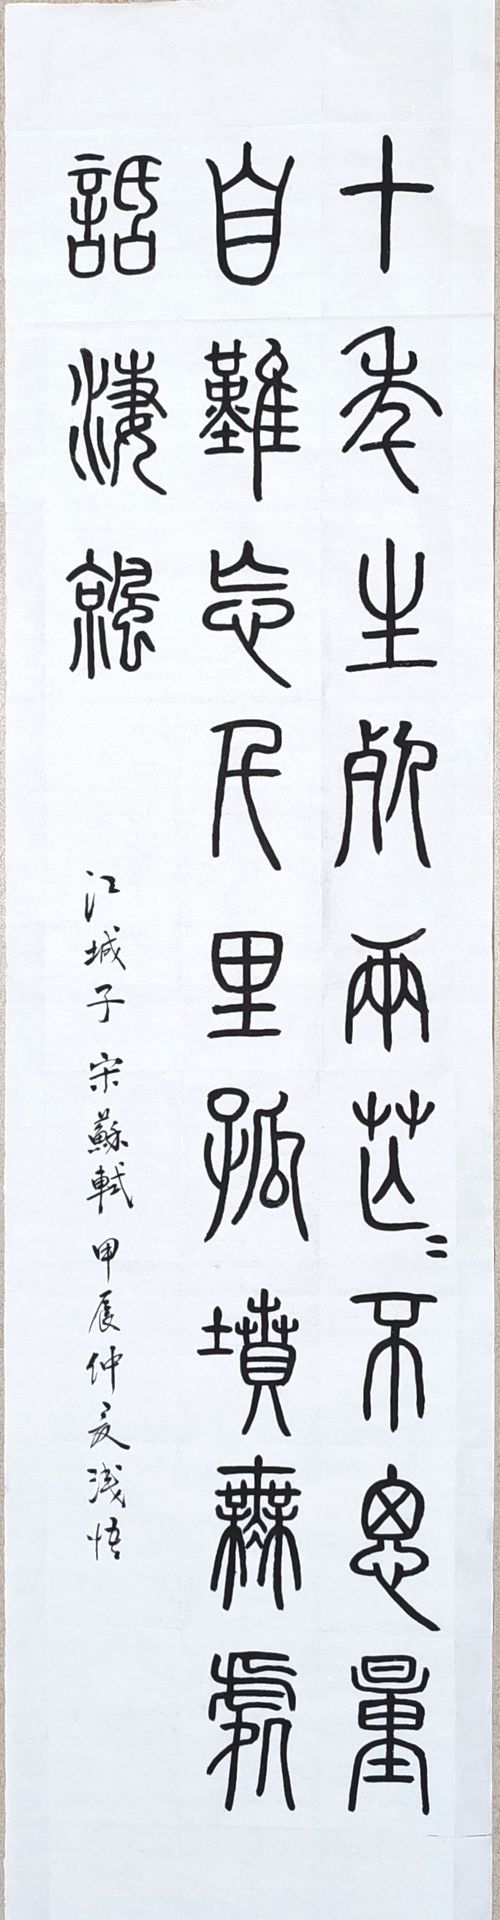 十年生死兩茫〻不思量
自難忘千里孤墳無處
話淒涼
江城子 宋蘇軾 甲辰仲夏浅悟